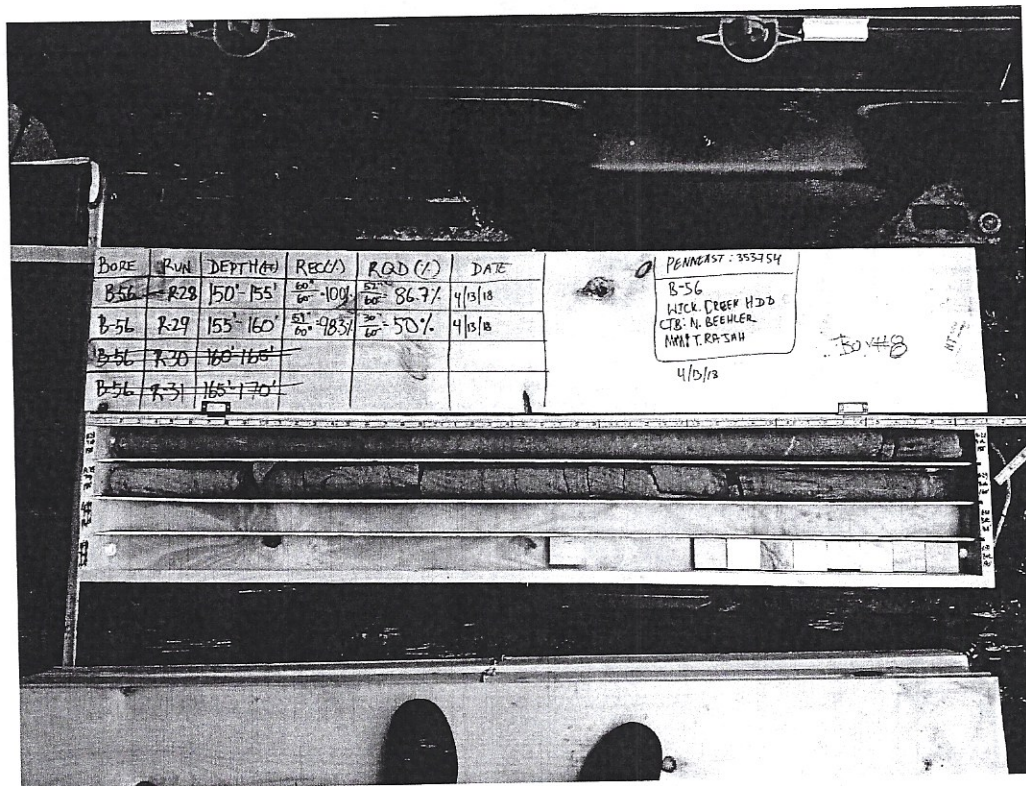 BORE RUN DEPTH(ft) REC(%) RQD (%) DATE
B-56 R-28 150'-155' 60"/60" =100% 52"/60" = 86.7% 4/13/18
B-56 R-29 155'-160' 59"/60" =98.3% 30"/60" = 50% 4/13/18
B-56 R-30 160'-165'
B-56 R-31 165'-170'
PENNEAST : 353754
B-56
WICK. CREEK HDD
CTB: N. BEEHLER
T. RAJAH
4/13/18
Box #8